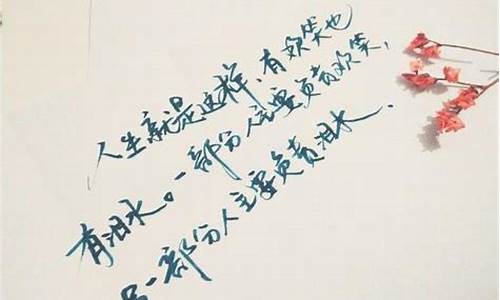 人生就是这样,有欢笑也
有泪水。一部分人主要负责欢笑,
另一部分人主要负责泪水.